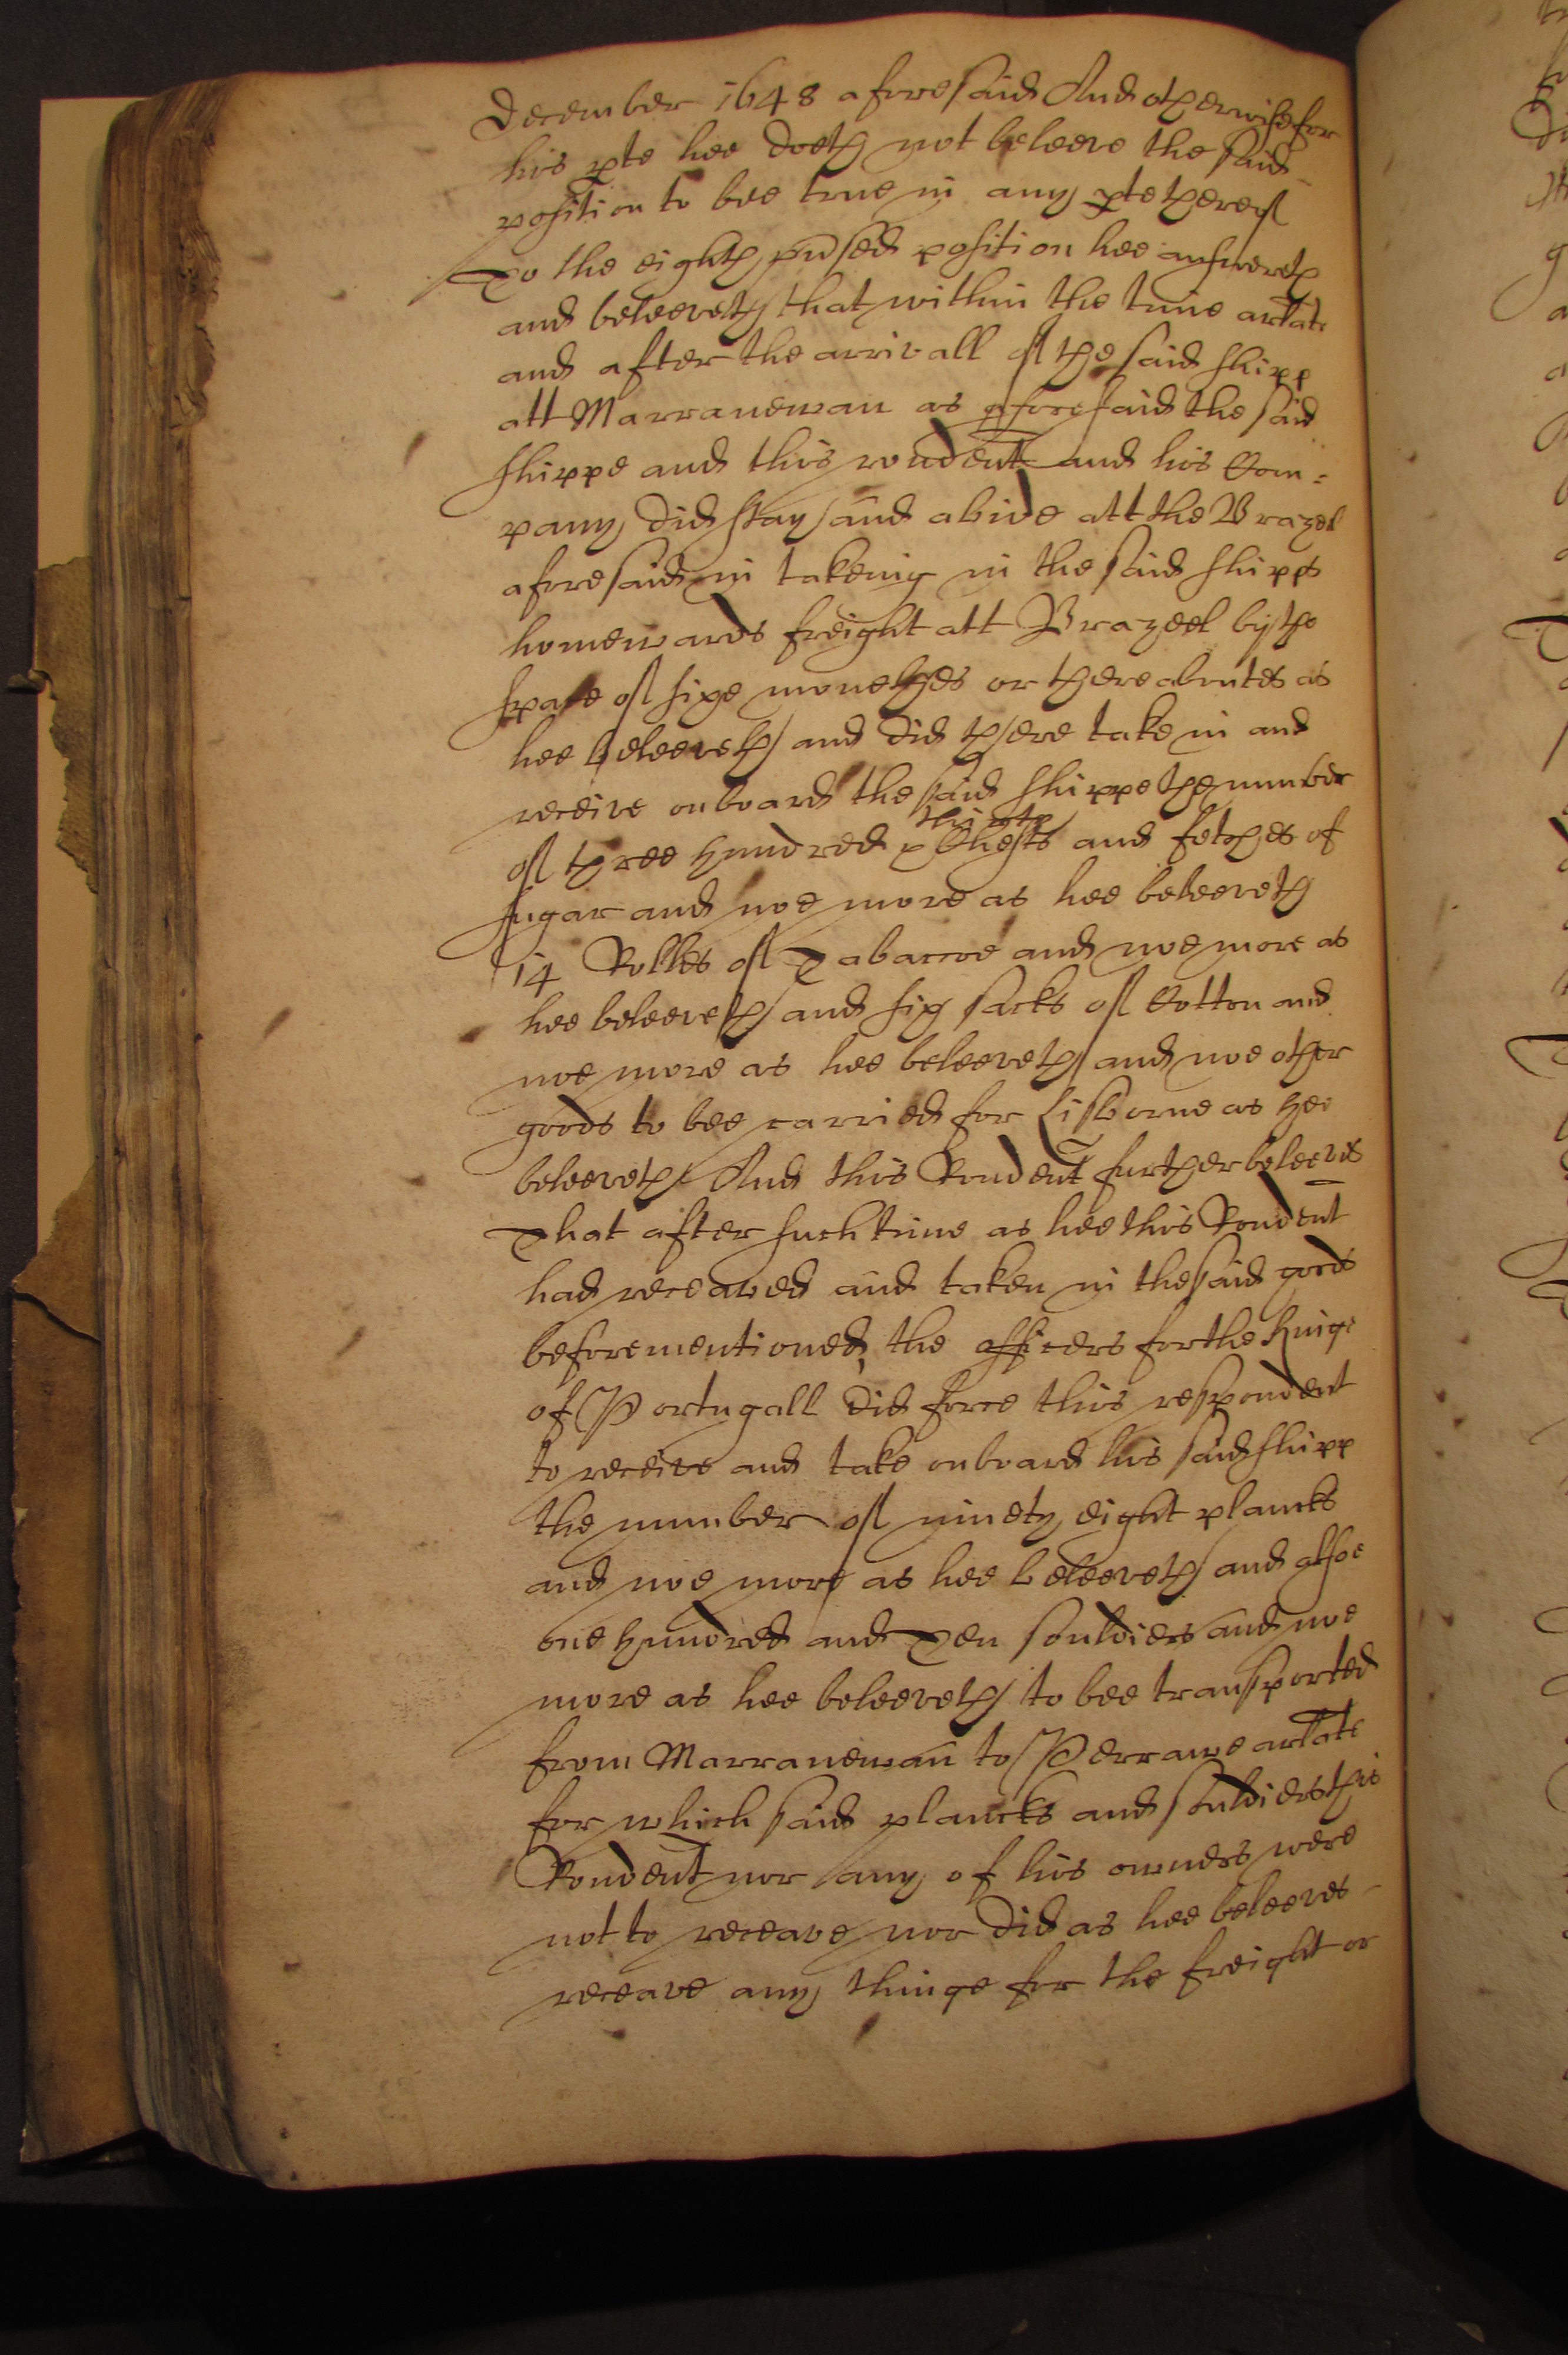 December 1648 aforesaid And otherwise for
his pte hee doeth not beleeve the said
position to bee true in any pte thereof
To the eighth pnsed position hee answereth
and beleeveth that within the time arlate
and after the arrivall of the said shipp
att Marranewan as aforesaid the said
shippe and this rondent and his Com=
pany did stay and abide att the Brazel
aforesaid in takeing in the said shipps
homewards freight att Brazeel by the
space of sixe monethes or thereaboutes as
hee beleeveth and did there take in and
receive onboard the said shippe the number
of three hundred thirty Chests and fetches of
sugar and noe more as hee beleeveth
14 Rolles of Tabaccoe and noe more as
hee beleeveth and six sacks of Cotton and
noe more as hee beleeveth and noe other
goods to bee carried for Lisborne as hee
beleeveth And this Rondent further beleeves
That after such time as hee this Rondent
had receaved and taken in the said goods
beforementioned, the officers for the Kinge
of Portugall did force this respondent
to receive and take onboard his said shipp
the number of ninety eight plancks
and noe more as hee beleeveth and alsoe
one hundred and Ten souldiers and noe
more as hee beleeveth to bee transported
from Marranewan to Perrawe arlate
for which said plancks and souldiers this
Rondent nor any of his owners were
not to receave nor did as hee beleeves
receave any thinge for the freight or